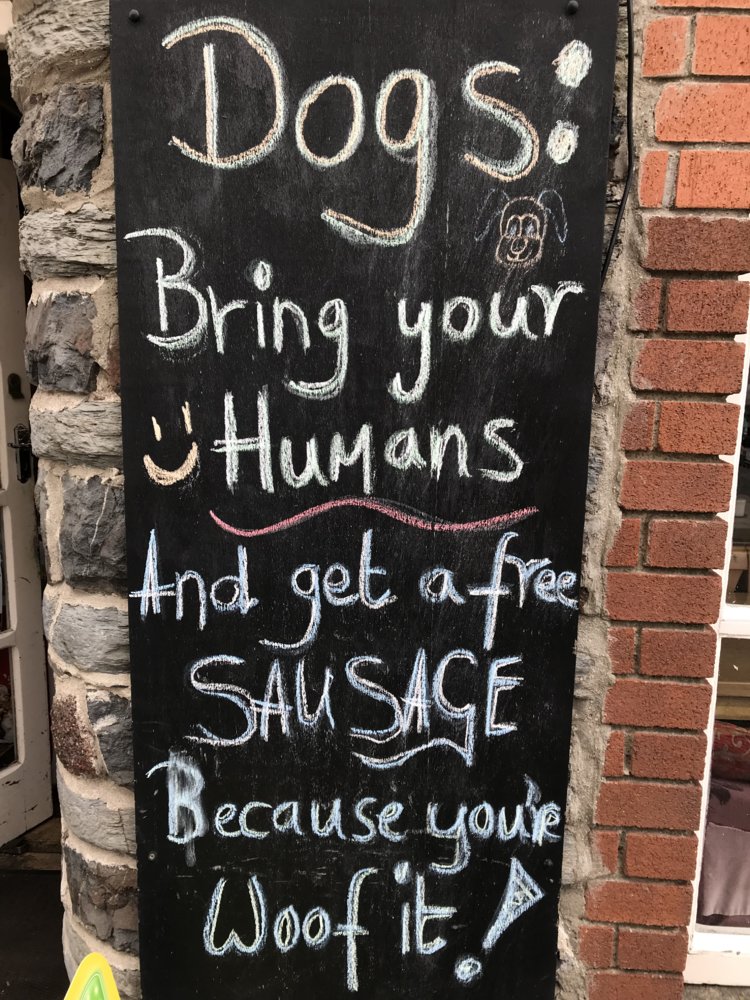 Dogs:
Bring your
Humans
And get a free
SAUSAGE
Because you're
Woof it!